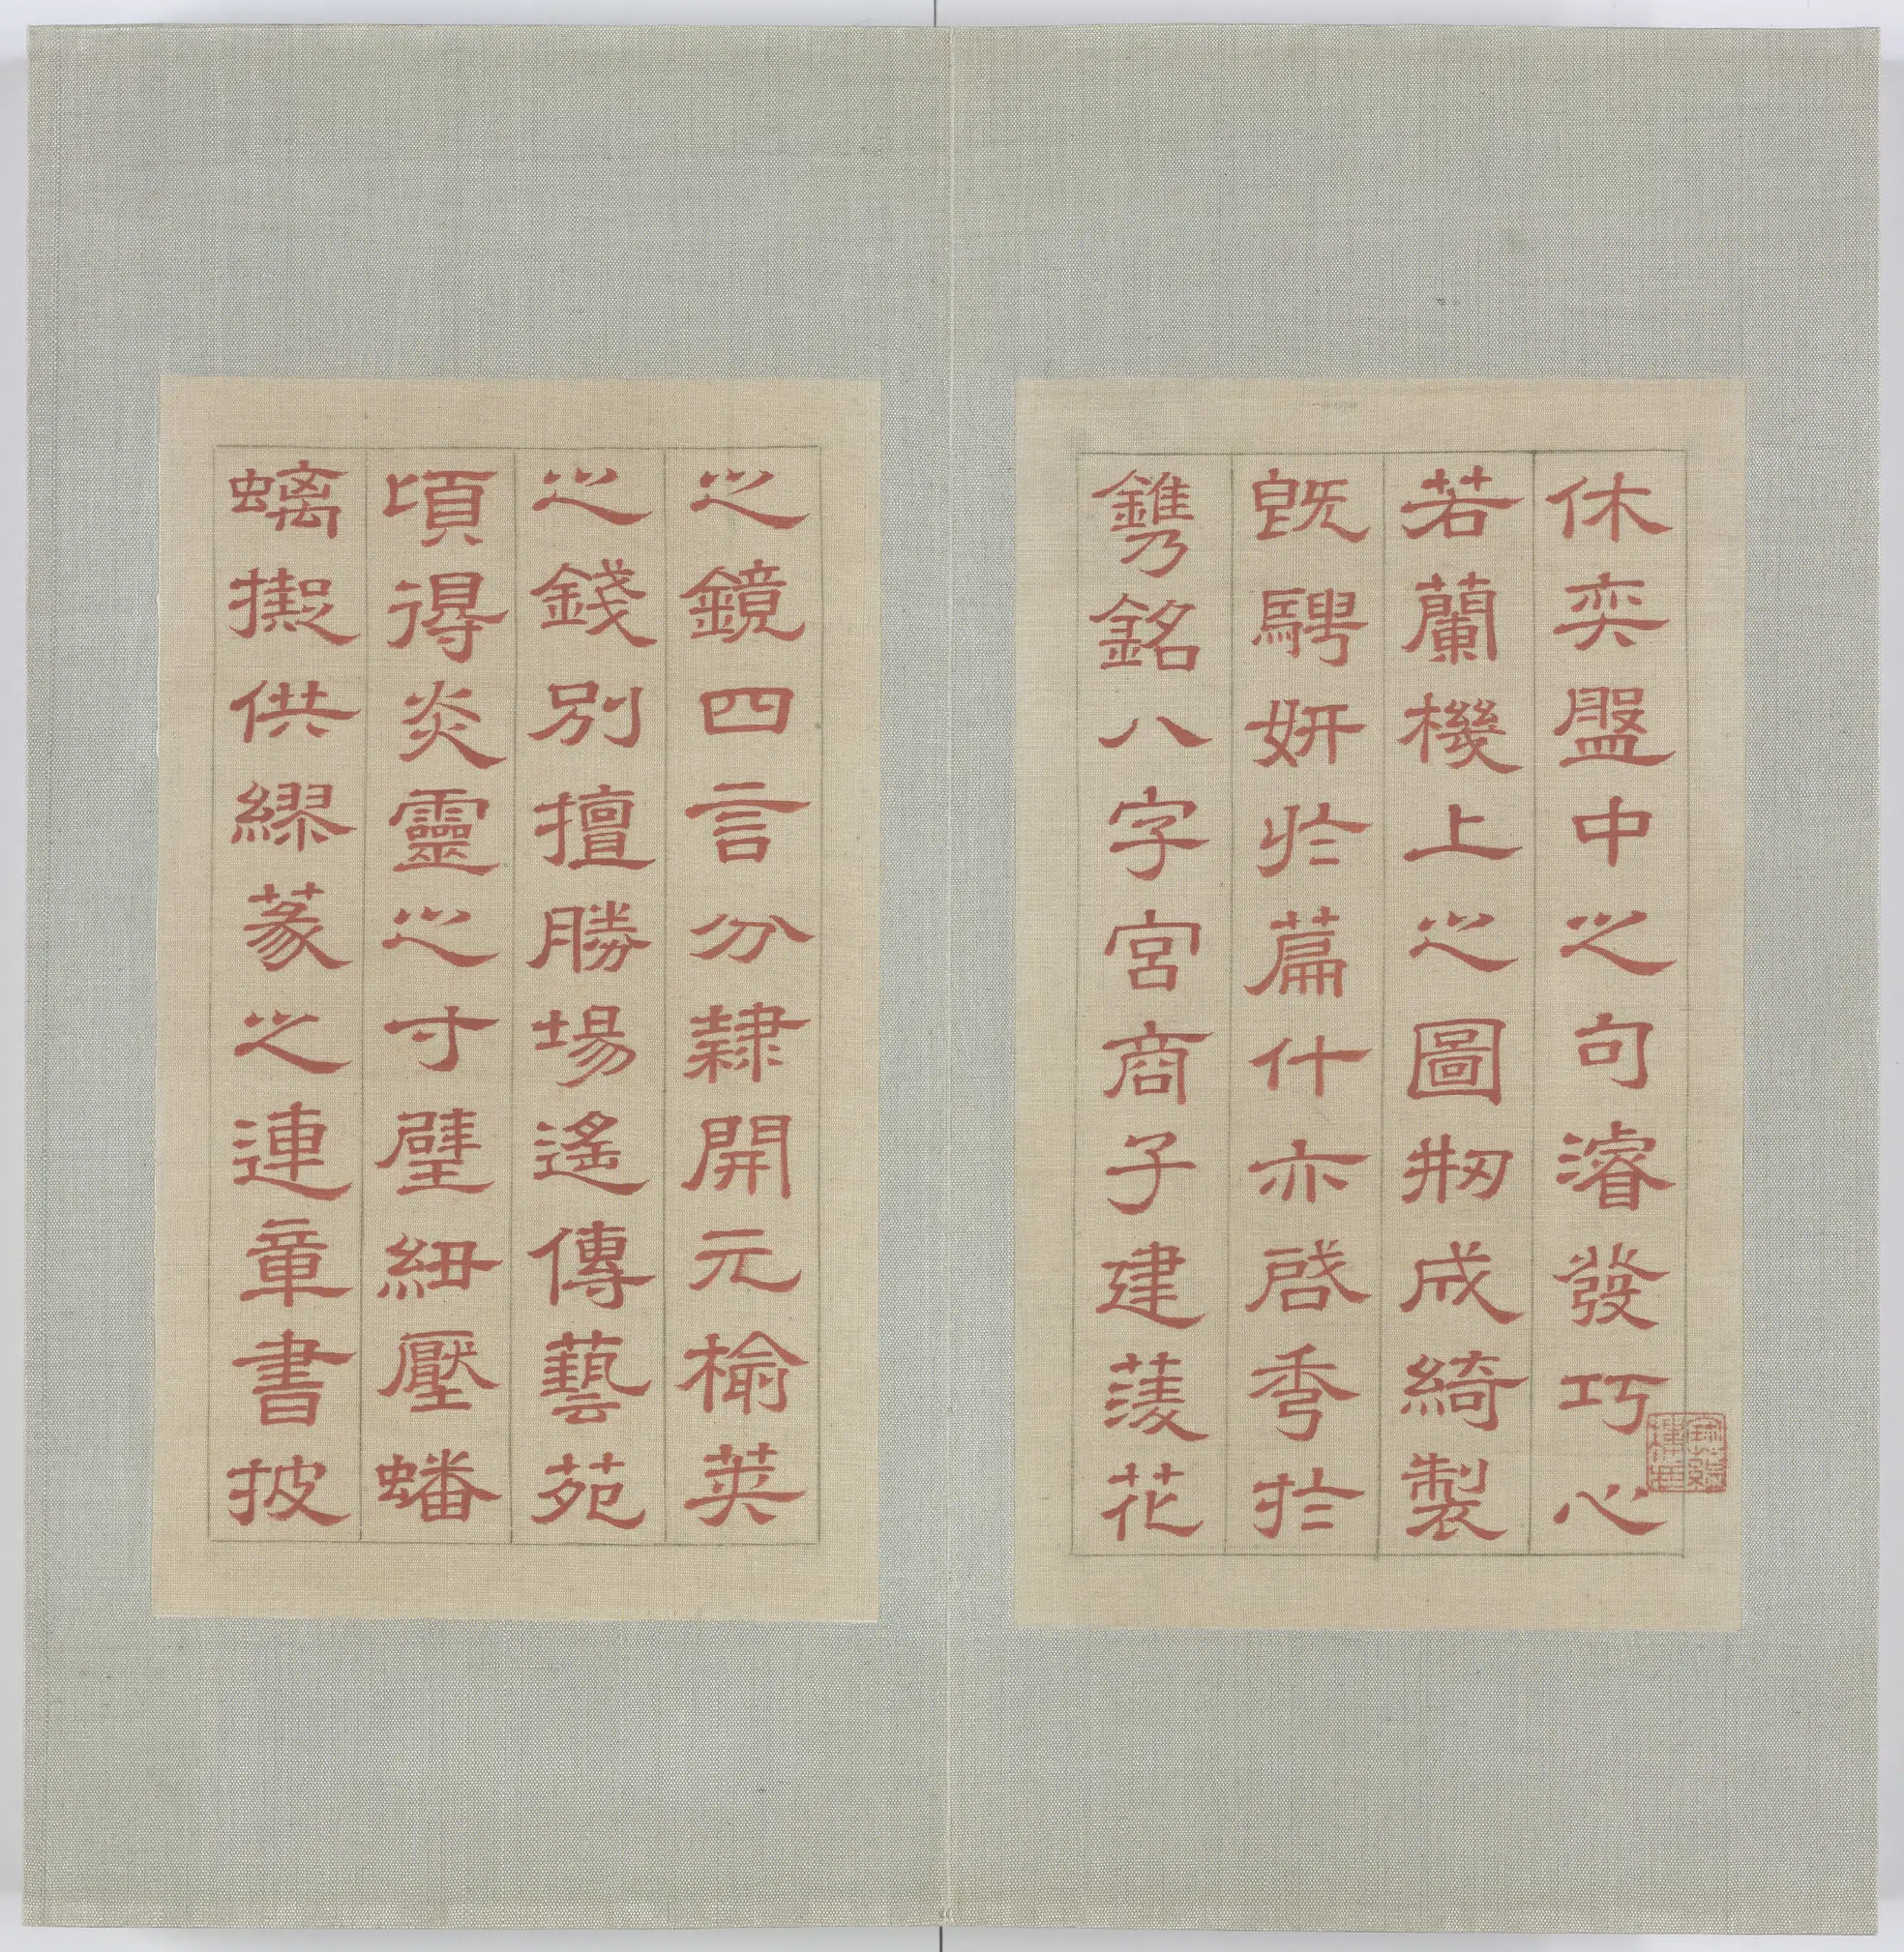 休奕盤中之句濬發巧心
若蘭機上之圖剏成綺製
既騁妍於篇什亦啓秀於
鐫銘八字宮商子建菱花
之鏡四言分隷開元榆莢
之錢別擅勝場遙傳藝苑
頃得炎靈之寸璧紐壓蟠
螭擬供繆篆之連章書披